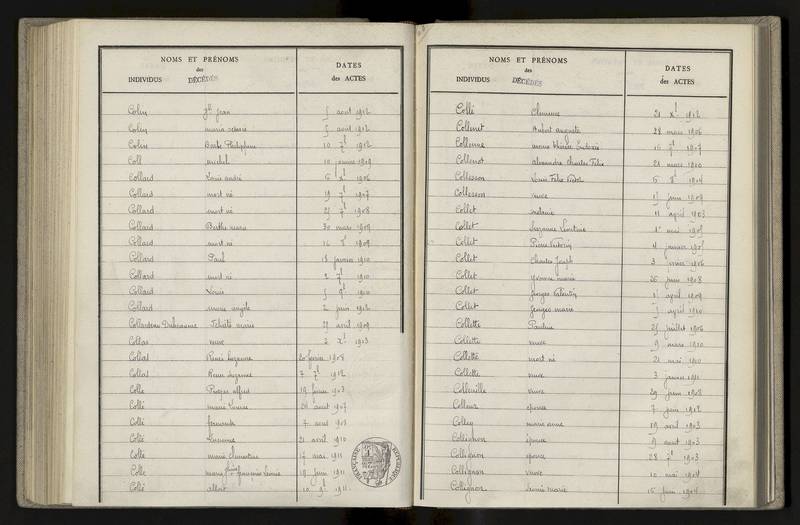 NOMS ET PRÉNOMS
des
INDIVIDUS DÉCÉDÉS
DATES
des ACTES
Colin Jh Jean 5 août 1912
Colin 5 août 1912
Colin 10 7bre 1912
Coll michel 10 janvier 1909
Collard Louis andré 6 Xbre 1906
Collard mort né 19 7bre 1907
Collard mort né 25 7bre 1908
Collard Berthe marie 30 mars 1909
Collard mort né 16 1909
Collard Paul 18 janvier 1910
Collard mort né 2 7bre 1910
Collard Louis 5 9bre 1910
Collard marie angèle 2 juin 1912
Collardeau Duheaume Félicité marie 29 avril 1909
Collas veuve 2 Xbre 1903
Collat Renée Suzanne 20 février 1908
Collat Suzanne 7 7bre 1912
Colle alfred 19 février 1903
Collé marie Louise 24 août 1907
Collé fernande 7 1908
Collé Lucienne 21 avril 1910
Collé marie Clémentine 17 mai 1911
Collé marie Léonie 19 juin 1911
Collé albert 10 9bre 1911
RÉPUBLIQUE FRANÇAISE
NOMS ET PRÉNOMS
des
INDIVIDUS DÉCÉDÉS
DATES
des ACTES
Collé Clémence 21 Xbre 1912
Collenet auguste 28 mars 1906
marie Thérèse 16 7bre 1907
Collenot alexandre Charles Félix 21 mars 1910
Collesson Louis Félix 6 8bre 1904
Collesson veuve 15 juin 1909
Collet mélanie 11 april 1903
Collet Suzanne 1er mai 1905
Collet Pierre 4 janvier 1905
Collet Charles Joseph 3 février 1906
Collet Yvonne marie 26 juin 1908
Collet Georges Valentin 1er april 1909
Collet Georges marie 5 april 1910
Collette Pauline 25 juillet 1906
Collette veuve 9 mars 1910
Collette mort né 21 mai 1910
Collette veuve 3 janvier 1911
Colleville veuve 29 juin 1908
Colleux épouse 7 juin 1912
Colley marie anne 19 avril 1903
Collignon épouse 9 août 1903
Collignon épouse 28 7bre 1903
Collignon veuve 10 mai 1904
Collignon Léonie marie 15 juin 1904